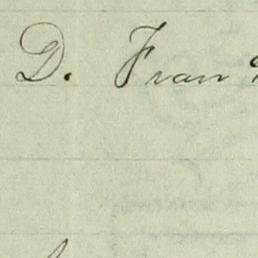 D. Fran